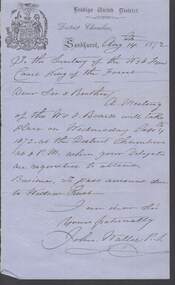 Bendigo United District
District Chamber,
Sandhurst, Aug 14th 1872
To the Secretary of the W & O Fund
Court King of the Forest
Dear Sir & Brother,
A Meeting
of the W & O Board will take
place on Wednesday Sept 4
1872 at the District Chambers
at 8 P.M. when your Delegate
are requested to attend
Business, To pass amount due
to Widow
I am dear Sir
Yours fraternally
John Waller